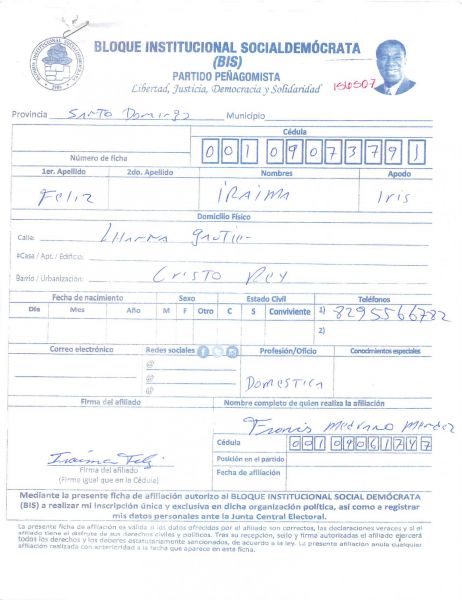 BLOQUE INSTITUCIONAL SOCIALDEMÓCRATA
(BIS)
PARTIDO PEÑAGOMISTA
Libertad, Justicia, Democracia y Solidaridad
Provincia Santo Domingo Municipio
Cédula
Número de ficha 00109073791
1er. Apellido 2do. Apellido Nombres Apodo
Feliz IRAIMA Iris
Domicilio Físico
Calle:
#Casa / Apt. / Edificio:
Barrio / Urbanización: Cristo Rey
Fecha de nacimiento Sexo Estado Civil Teléfonos
Día Mes Año M F Otro C S Conviviente 1) 8295566782
2)
Correo electrónico Redes sociales Profesión/Oficio Conocimientos especiales
@
@
@
Domestica
Firma del afiliado Nombre completo de quien realiza la afiliación
Medrano Mendez
Cédula
Posición en el partido
Fecha de afiliación
Iraima Feliz
Firma del afiliado
(Firma igual que en la Cédula)
Mediante la presente ficha de afiliación autorizo al BLOQUE INSTITUCIONAL SOCIAL DEMÓCRATA
(BIS) a realizar mi inscripción única y exclusiva en dicha organización política, así como a registrar
mis datos personales ante la Junta Central Electoral.
La presente ficha de afiliación es válida si los datos ofrecidos por el afiliado son correctos, las declaraciones veraces y si el
afiliado tiene el disfrute de sus derechos civiles y políticos. Tras su recepción, sello y firma autorizada el afiliado ejercerá
todos los derechos y los deberes estatutariamente sancionados, de acuerdo a la ley. La presente afiliación anula cualquier
afiliación realizada con anterioridad a la fecha que aparece en esta ficha.